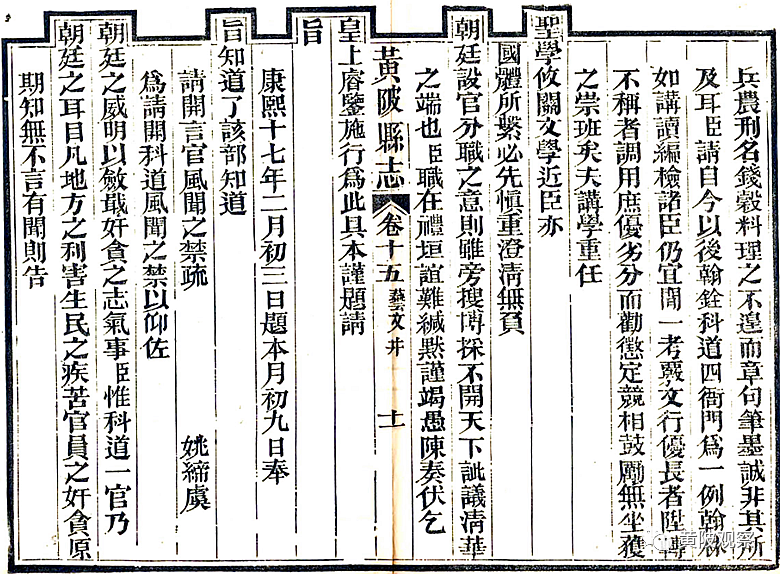 兵農刑名錢穀料理之不遑而章句筆墨誠非其所
及耳臣請自今以後翰銓科道四衙門爲一例翰林
如講讀編檢諸臣仍宜間一考覈文行優長者陞轉
不稱者調用庶優劣分而勸懲定競相鼓勵無坐獲
之崇班矣夫講學重任
聖學攸關文學近臣亦
國體所繫必先慎重澄清無負
朝廷設官分職之意則雖旁搜博採不開天下訿議清華
之端也臣職在禮垣誼難緘默謹竭愚陳奏伏乞
黃陂縣志 卷十五 藝文 井 十一
皇上睿鑒施行爲此具本謹題請
旨
康熙十七年二月初三日題本月初九日奉
旨知道了該部知道
請開言官風聞之禁疏 姚締虞
爲請開科道風聞之禁以仰佐
朝廷之威明以斂戢奸貪之志氣事臣惟科道一官乃
朝廷之耳目凡地方之利害生民之疾苦官員之奸貪原
期知無不言有聞則告
黄陂观察